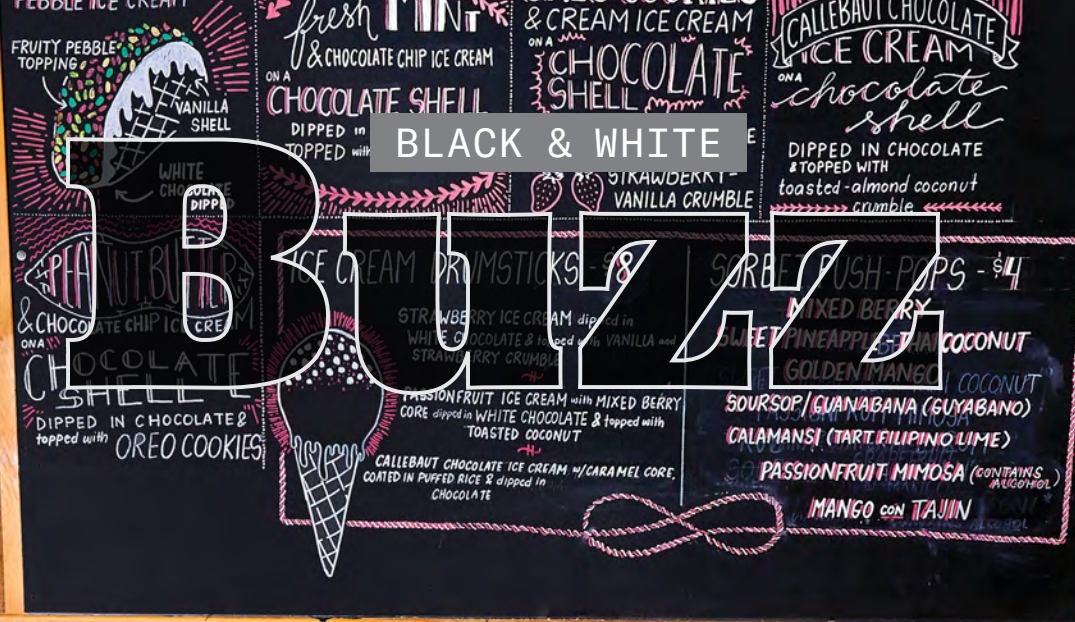 PEBBLE ICE CREAM
FRUITY PEBBLE
TOPPING
VANILLA
SHELL
WHITE
CHOCOLATE
DIPPED
fresh MINT
& CHOCOLATE CHIP ICE CREAM
ON A
CHOCOLATE SHELL
DIPPED in
TOPPED with
& CREAM ICE CREAM
ON A
CHOCOLATE
SHELL
STRAWBERRY-
VANILLA CRUMBLE
CALLEBAUT CHOCOLATE
ICE CREAM
ON A chocolate
shell
DIPPED IN CHOCOLATE
& TOPPED WITH
toasted-almond coconut
crumble
BLACK & WHITE
BUZZ
PEANUT BUTTER
& CHOCOLATE CHIP ICE CREAM
ON A
CHOCOLATE
SHELL
DIPPED IN CHOCOLATE &
topped with OREO COOKIES
ICE CREAM DRUMSTICKS - $8
STRAWBERRY ICE CREAM dipped in
WHITE CHOCOLATE & topped with VANILLA and
STRAWBERRY CRUMBLE
PASSIONFRUIT ICE CREAM with MIXED BERRY
CORE dipped in WHITE CHOCOLATE & topped with
TOASTED COCONUT
CALLEBAUT CHOCOLATE ICE CREAM w/CARAMEL CORE,
COATED IN PUFFED RICE & dipped in
CHOCOLATE
SORBET PUSH POPS - $4
MIXED BERRY
SWEET PINEAPPLE - THAI COCONUT
GOLDEN MANGO
SOURSOP/GUANABANA (GUYABANO)
CALAMANSI (TART FILIPINO LIME)
PASSIONFRUIT MIMOSA (CONTAINS ALCOHOL)
MANGO CON TAJIN